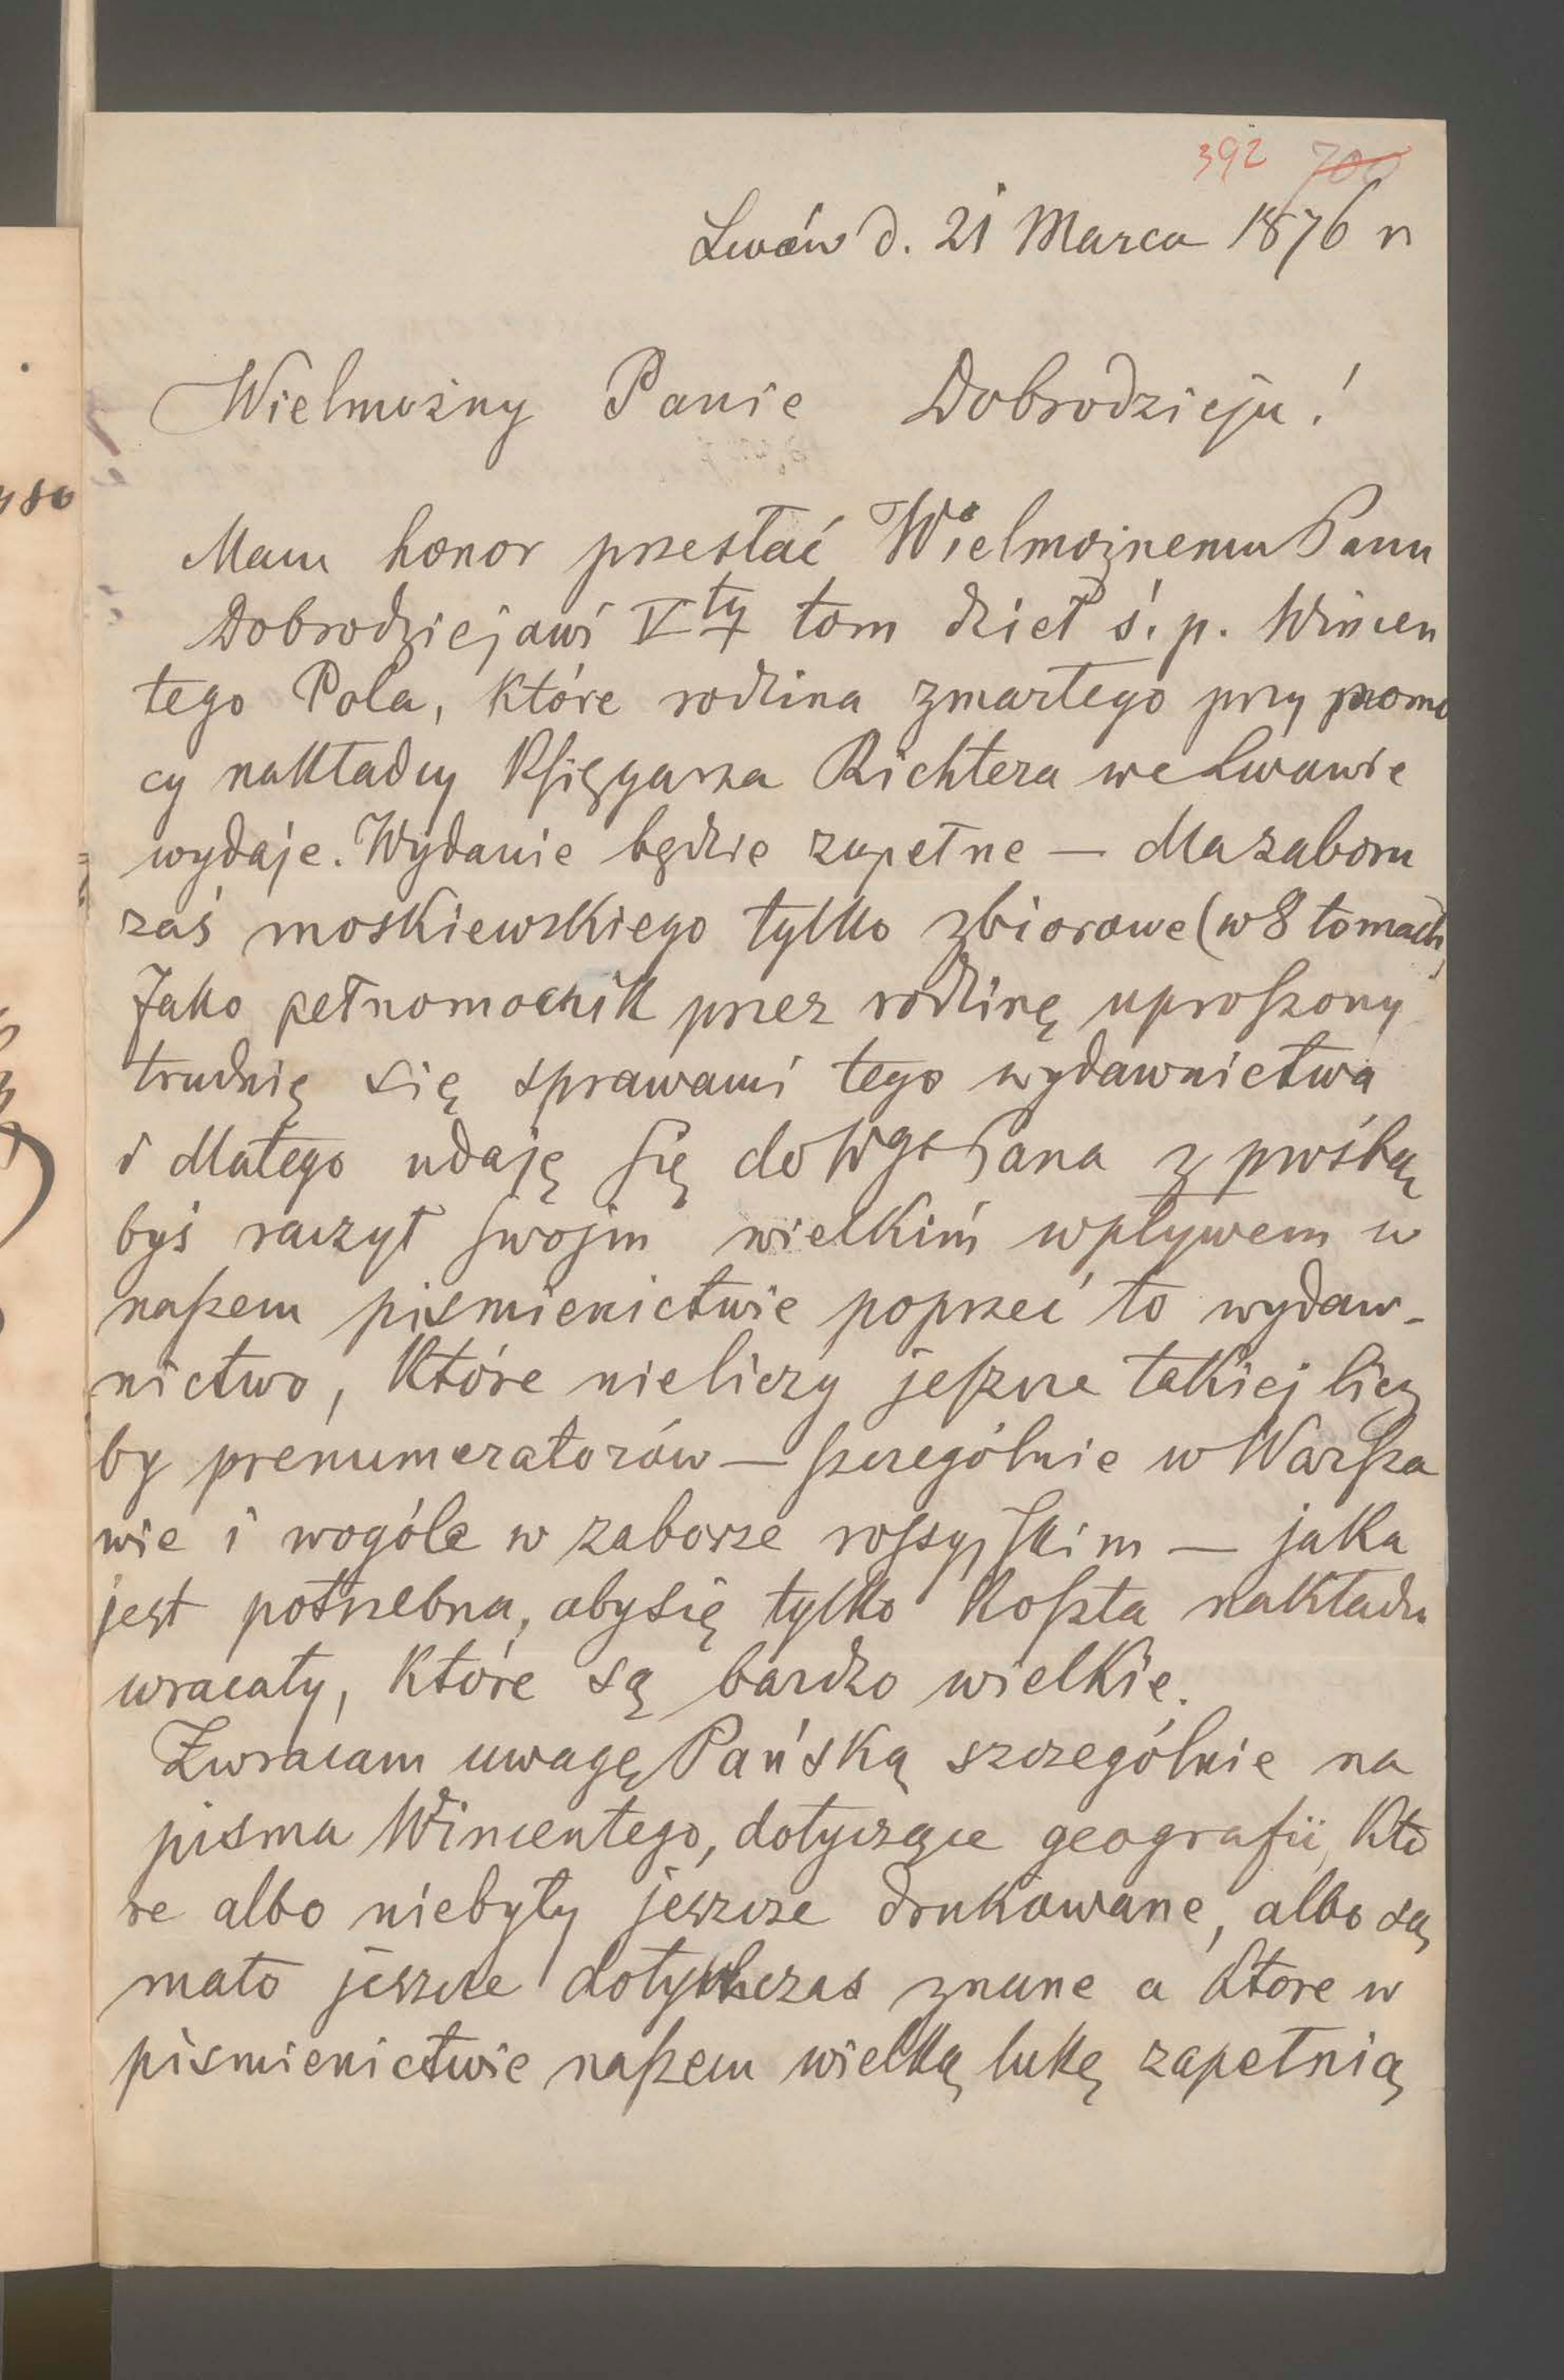 392 700
Lwów d. 21 Marca 1876 r
Wielmożny Panie Dobrodzieju!
Mam honor przesłać Wielmożnemu Panu
Dobrodziejowi V ty tom dzieł ś. p. Wincen
tego Pola, które rodzina zmarłego przy pomo
cy nakładcy Księgarza Richtera we Lwowie
wydaje. Wydanie będzie zupełne — dla zaboru
zaś moskiewskiego tylko zbiorowe (w 8 tomach)
Jako pełnomocnik przez rodzinę uproszony
trudnię się sprawami tego wydawnictwa
i dlatego udaję się do Wgo Pana z prośbą
byś raczył swojm wielkim wpływem w
naszem piśmienictwie poprzeć to wydaw-
nictwo, które nieliczy jeszcze takiej licz
by prenumeratorów — szczególnie w Warsza
wie i wogóle w zaborze rossyjskim — jaka
jest potrzebna, aby się tylko koszta nakładu
wracały, które są bardzo wielkie.
Zwracam uwagę Pańską szczególnie na
pisma Wincentego, dotyczące geografii, któ
re albo niebyły jeszcze drukowane, albo są
mało jeszcze dotychczas znane a które w
piśmienictwie naszem wielką lukę zapełnią